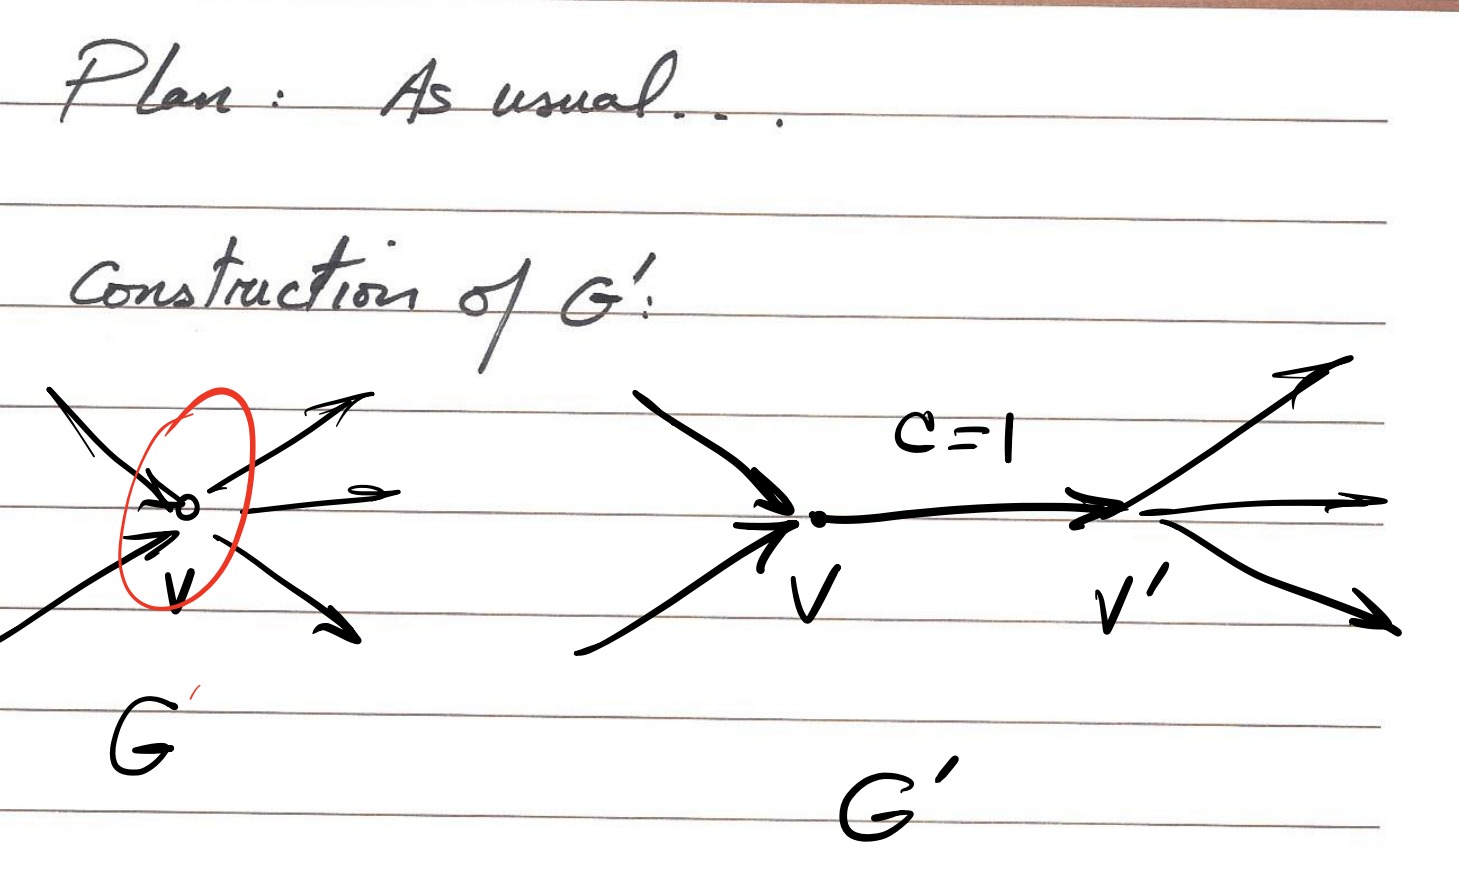 Plan: As usual...
Construction of G':
C=1
V
V
V'
G'
G'